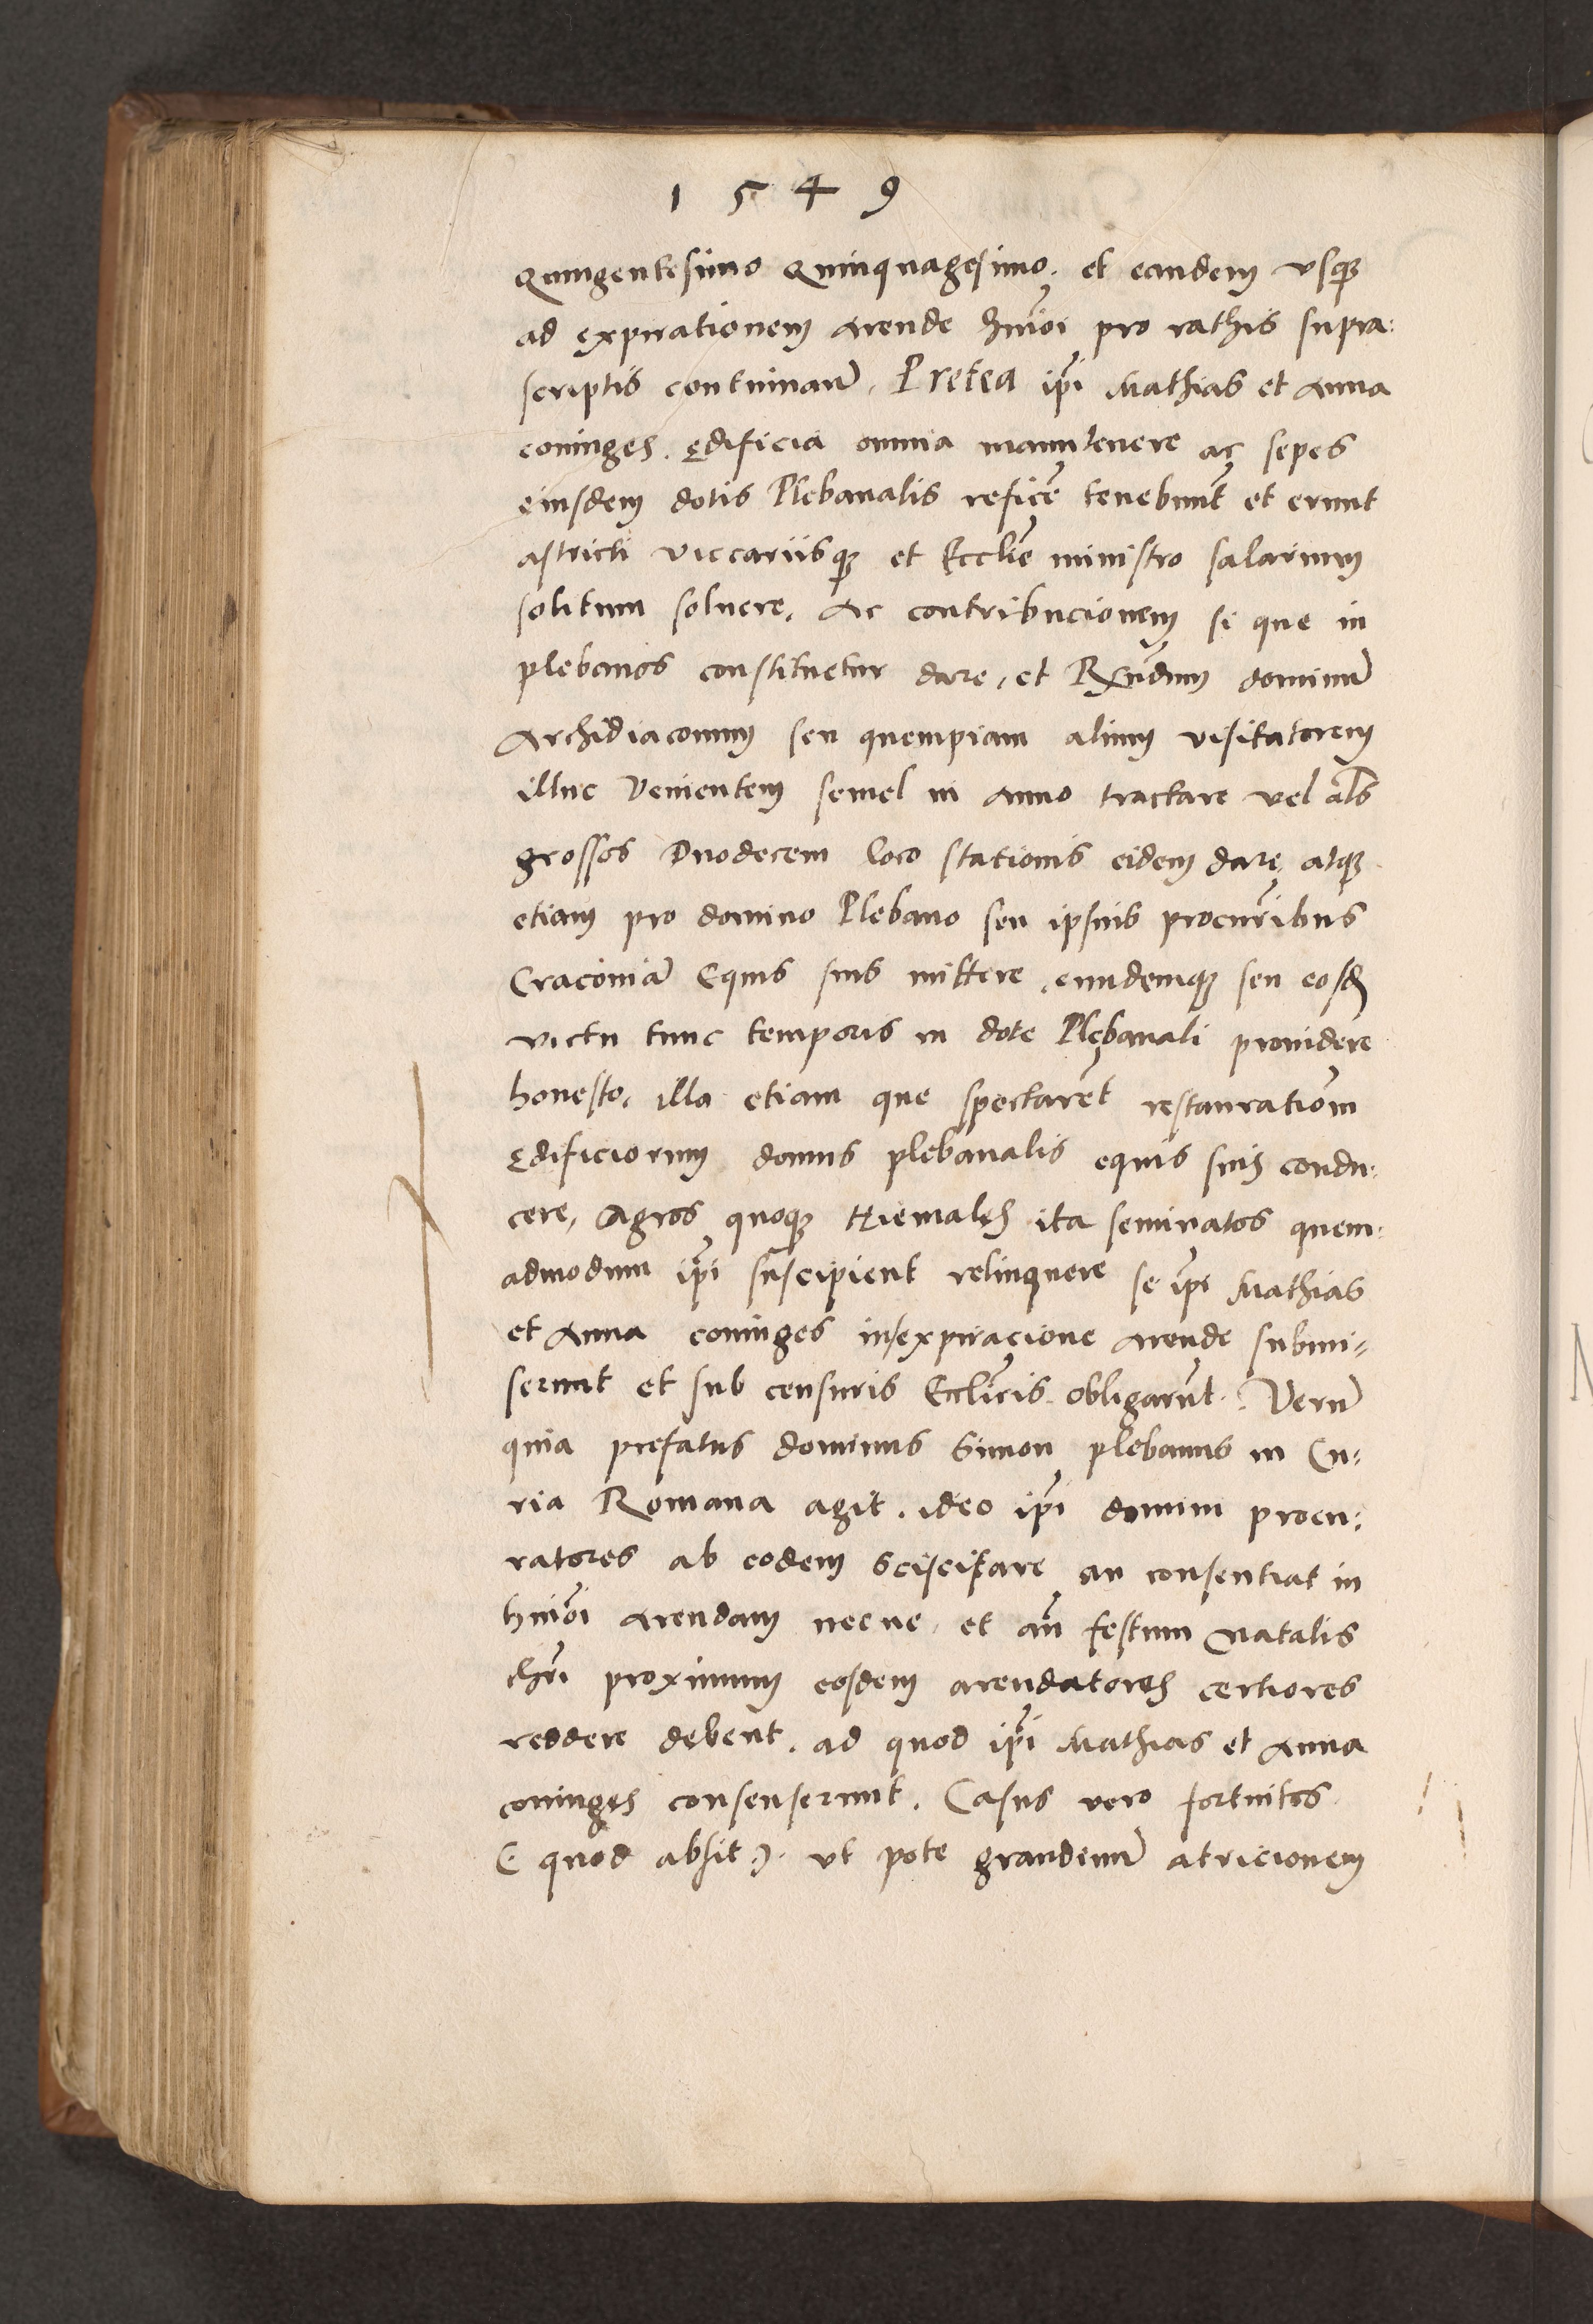 1549
Quingentesimo Quinquagesimo. et eandem vsq̨
ad expirationem Arende hmōi pro rathis supra:
scriptis continuarē. Pretea ip̄i Mathias et Anna
coniuges. ędificia omnia manutenere ac sepes
eiusdem dotis Plebanalis reficē tenebunt̄ et erunt
astricti viccariisq̨ et Ecclīe ministro salarium
solitum soluere. Ac contribucionem si que in
plebanos constituetur dare, et Rx̄ndum dominū
Archidiaconum seu quempiam alium visitatorem
illuc Venientem semel in anno tractare vel al̄s
grossos Duodecem loco stationis eidem dare, atq̨
etiam pro domino Plebano seu ipsius procur̄ibus
Cracouiā Equis suis mittere, eundemq̨ seu eosd̄
victu tunc temporis in dote Plebanali prouidere
honesto. illa etiam que spectarēt restauratiom̄
ędificiorum domus plebanalis equis suis condu:
cere, Agros quoq̨ Hiemales ita seminatos quem:
admodum ip̄i suscipient relinquere se ip̄i Mathias
et Anna coniuges in expiracione Arende submi=
serunt et sub censuris Eccl̄icis obligarūt. Verū
quia prefatus dominus Simon plebanus in Cu=
ria Romana agit. ideo ip̄i domini procu:
ratores ab eodem sciscitare an consentiat in
hmōi Arendam necne, et an̄ festum Natalis
chr̄i proximum eosdem arendatores certiores
reddere debent. ad quod ip̄i Mathias et Anna
coniuges consenserunt. Casus vero fortuitos
( quod absit ). vt pote grandenū atricionem